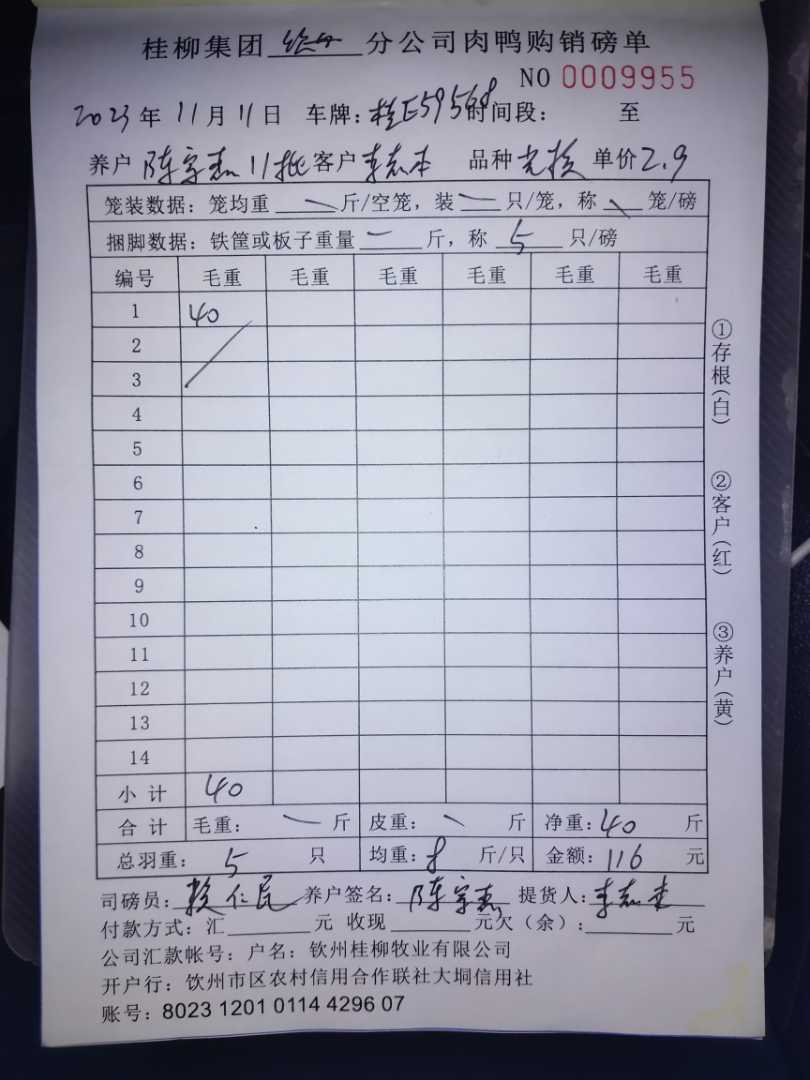 桂柳集团 分公司肉鸭购销磅单
NO 0009955
2023年11月11日 车牌：桂E59568 时间段： 至
养户 陈宗杰 11批 客户 李志杰 品种 单价2.9
笼装数据：笼均重 一 斤/空笼，装 一 只/笼，称 一 笼/磅
捆脚数据：铁筐或板子重量 一 斤，称 5 只/磅
编号 毛重 毛重 毛重 毛重 毛重 毛重
1 40
2
3
4
5
6
7
8
9
10
11
12
13
14
小计 40
合计 毛重： 一 斤 皮重： 一 斤 净重：40 斤
总羽重： 5 只 均重：8 斤/只 金额：116 元
司磅员： 仁民 养户签名：陈宗杰 提货人：李志杰
付款方式：汇 元 收现 元欠（余）： 元
公司汇款帐号：户名：钦州桂柳牧业有限公司
开户行：饮州市区农村信用合作联社大垌信用社
账号：8023 1201 0114 4296 07
①存根（白）
②客户（红）
③养户（黄）